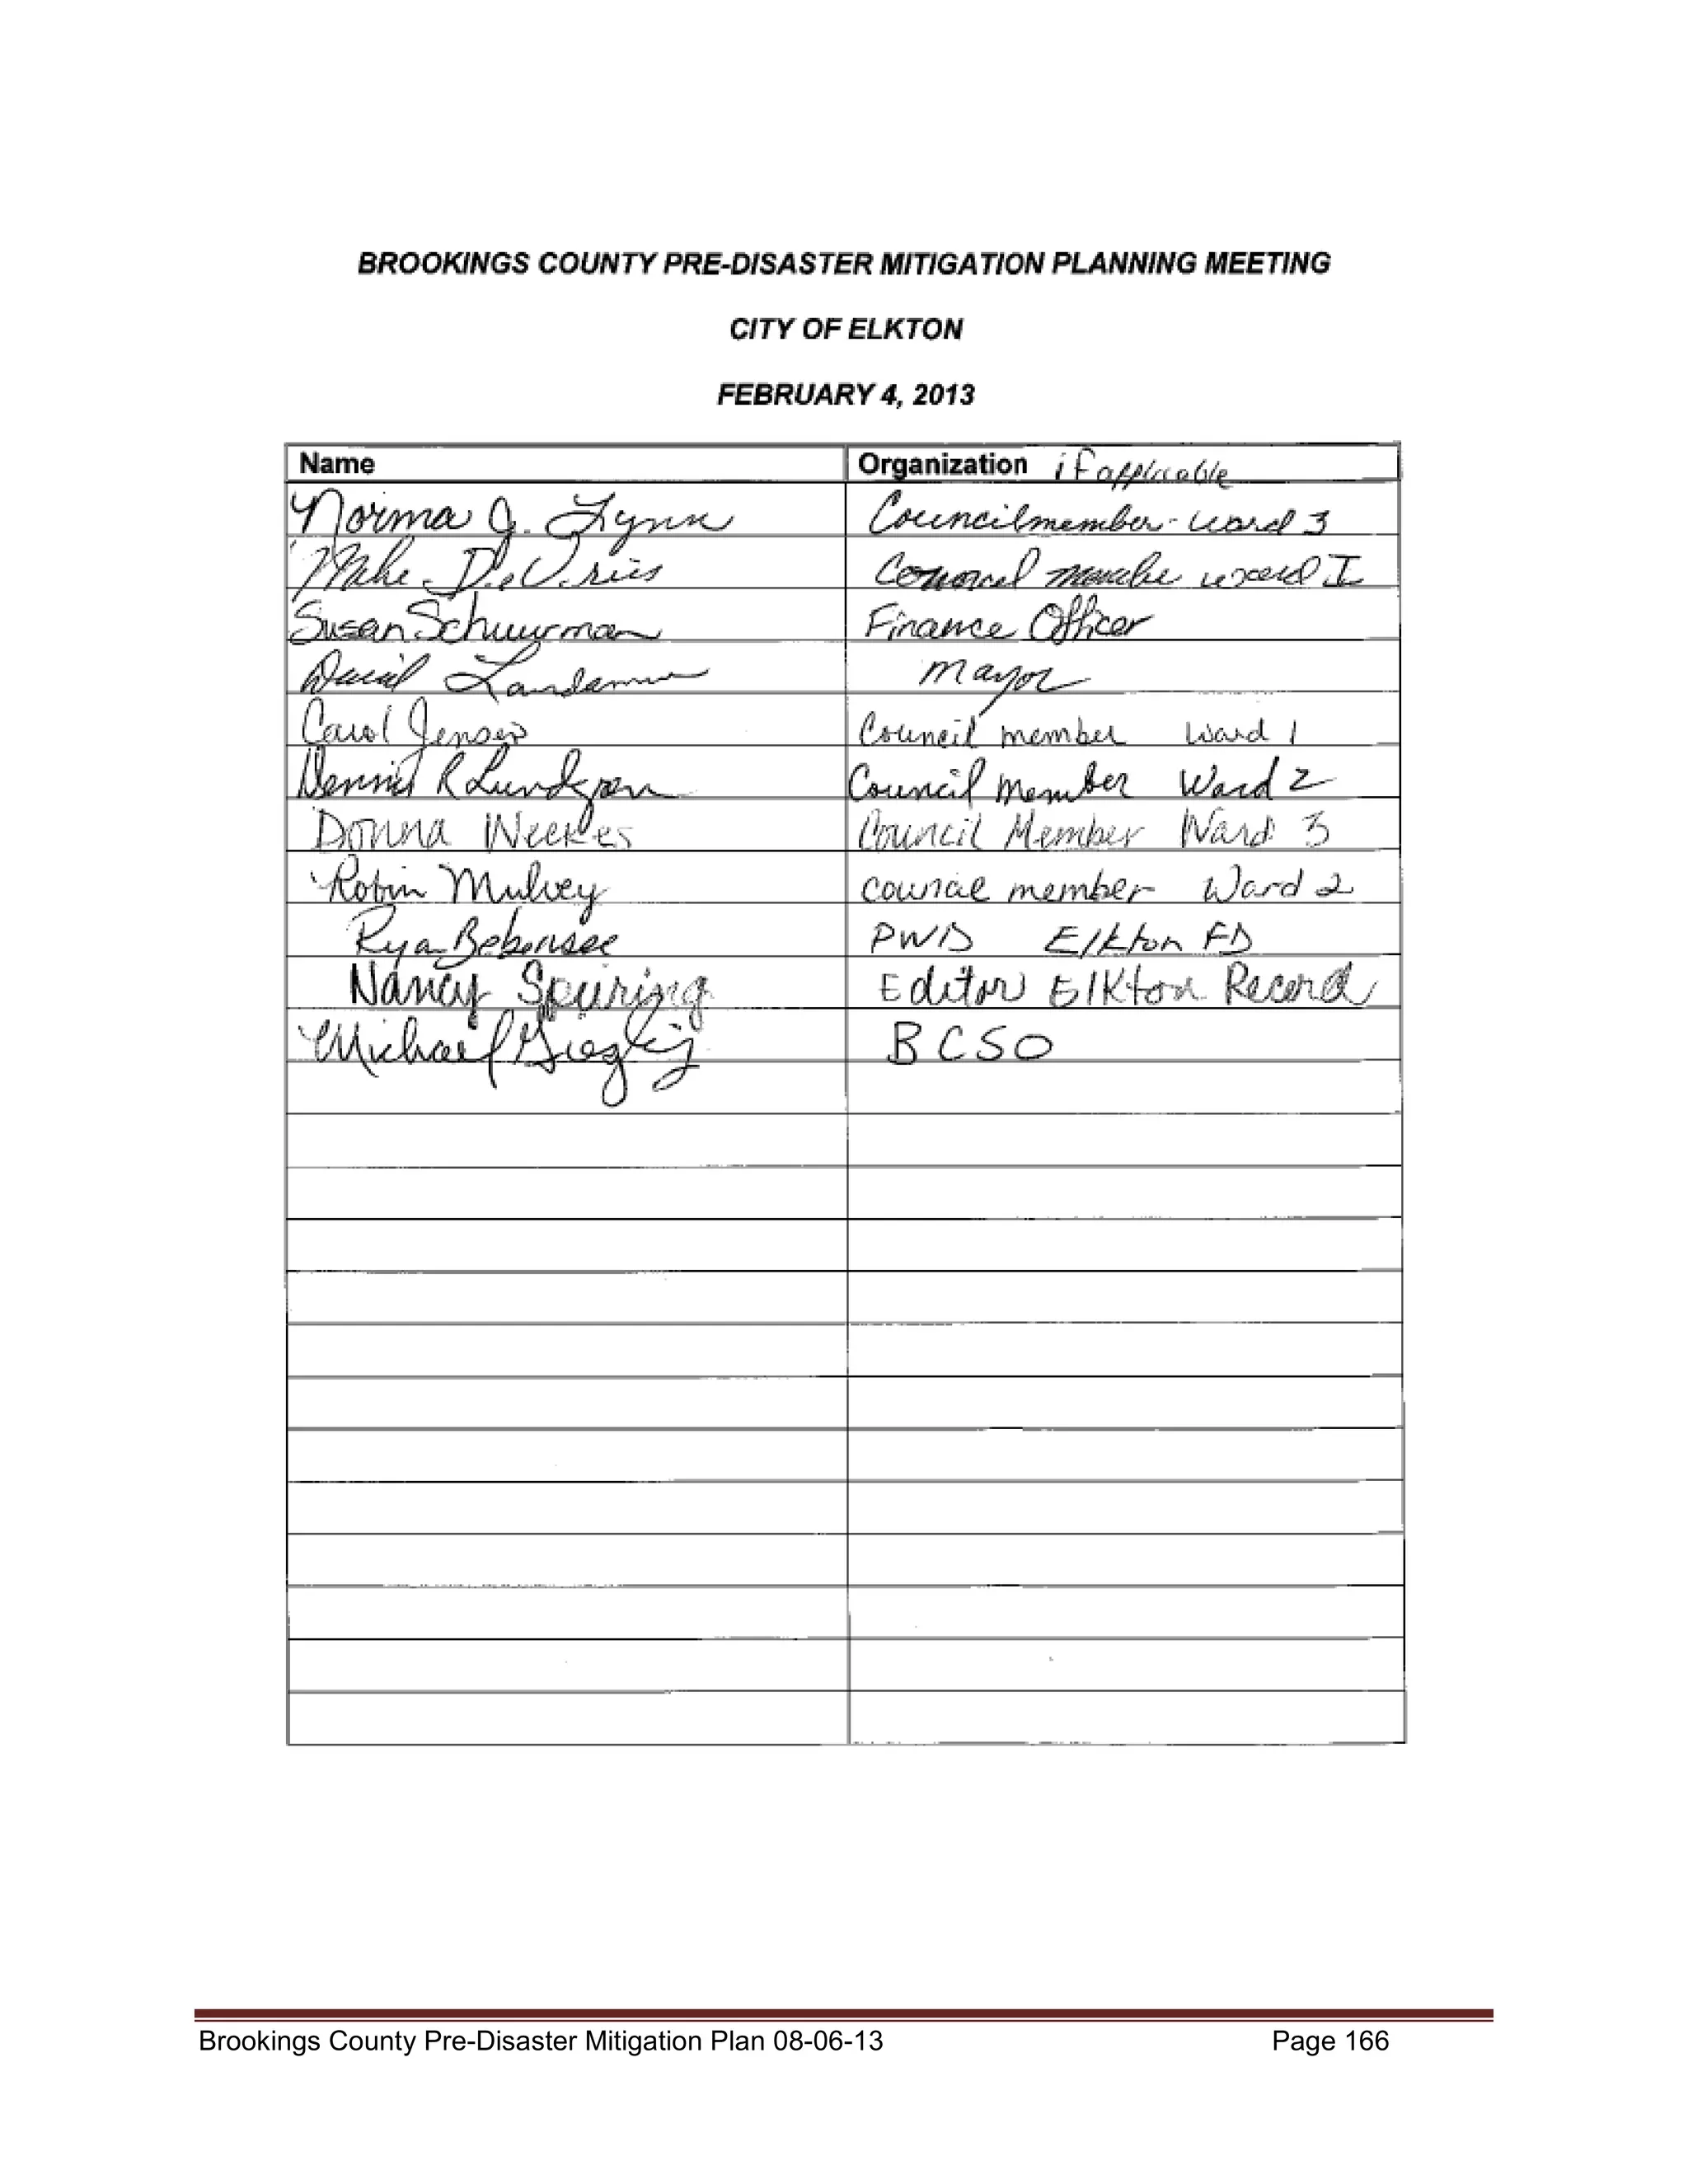 BROOKINGS COUNTY PRE-DISASTER MITIGATION PLANNING MEETING
CITY OF ELKTON
FEBRUARY 4, 2013
Name Organization if applicable
Norma J. Lynn Councilmember - ward 3
Mike DeVries ward I
Susan Schuurman Finance Officer
David Mayor
Carol Jensen Council member Ward 1
Dennis R Lundgren Council Member Ward 2
Donna Weekes Council Member Ward 3
Robin Mulvey council member Ward 2
Ryan Bebensee PWD Elkton FD
Nancy Spuring Editor Elkton Record
Michael BCSO
Brookings County Pre-Disaster Mitigation Plan 08-06-13 Page 166